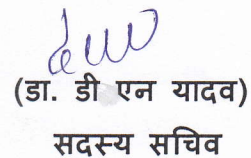 (डा. डी एन यादव)
सदस्य सचिव